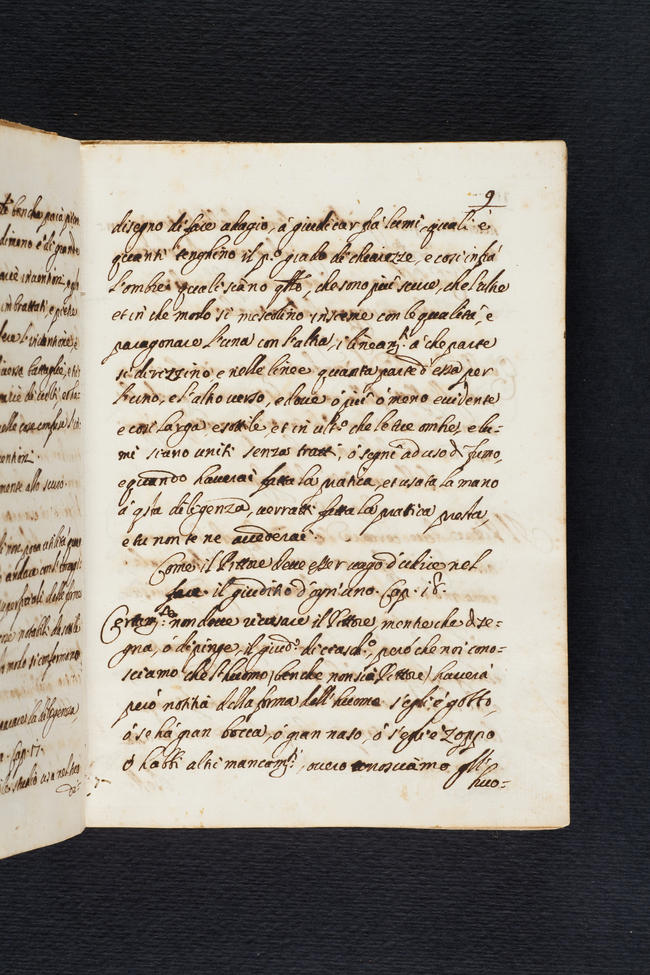 tè benche paia piu
dimeno è di grande
9
disegno di fare adagio, à giudicar frà lumi, quali è
quanti tenghino il p.º grado di chiarezze, e così infrà
l'ombre quali siano qlle, che sono più scure, che l'altre
et in che modo si mescolino insieme con le qualità, e
paragonare l'una con l'altra, i lineam.ti à che parte
si drizzino e nelle linee quanta parte d'essa per
l'uno, e l'altro verso, e dove ò più ò meno evidente
e così larga, e sottile, et in ult.º che le tue ombre, e lu-
mi siano uniti senza tratti, ò segni ad uso di fumo,
e quando haverai fatta la pratica, et usata la mano
à q.sta diligenza, verratti fatta la pratica presta,
e tu non te ne avederai.
Come il Pittore deve esser vago d'udire nel
fare il giuditio d'ogn'uno. Cap. 18.
Certam.te non deve ricusare il Pittore, mentre che dise-
gna, ò dipinge, il giud.º di ciasch.º, però che noi cono-
sciamo che l'huomo (benche non sia Pittore) haverà
però notitia della forma dell'huomo s'egli è gobbo,
ò se hà gran bocca, ò gran naso, ò s'egli è Zoppo
ò habbi altri mancam.ti, ovvero conosciamo gl'
huo-
inventioni.
mente allo scuro.
Cap. 17.